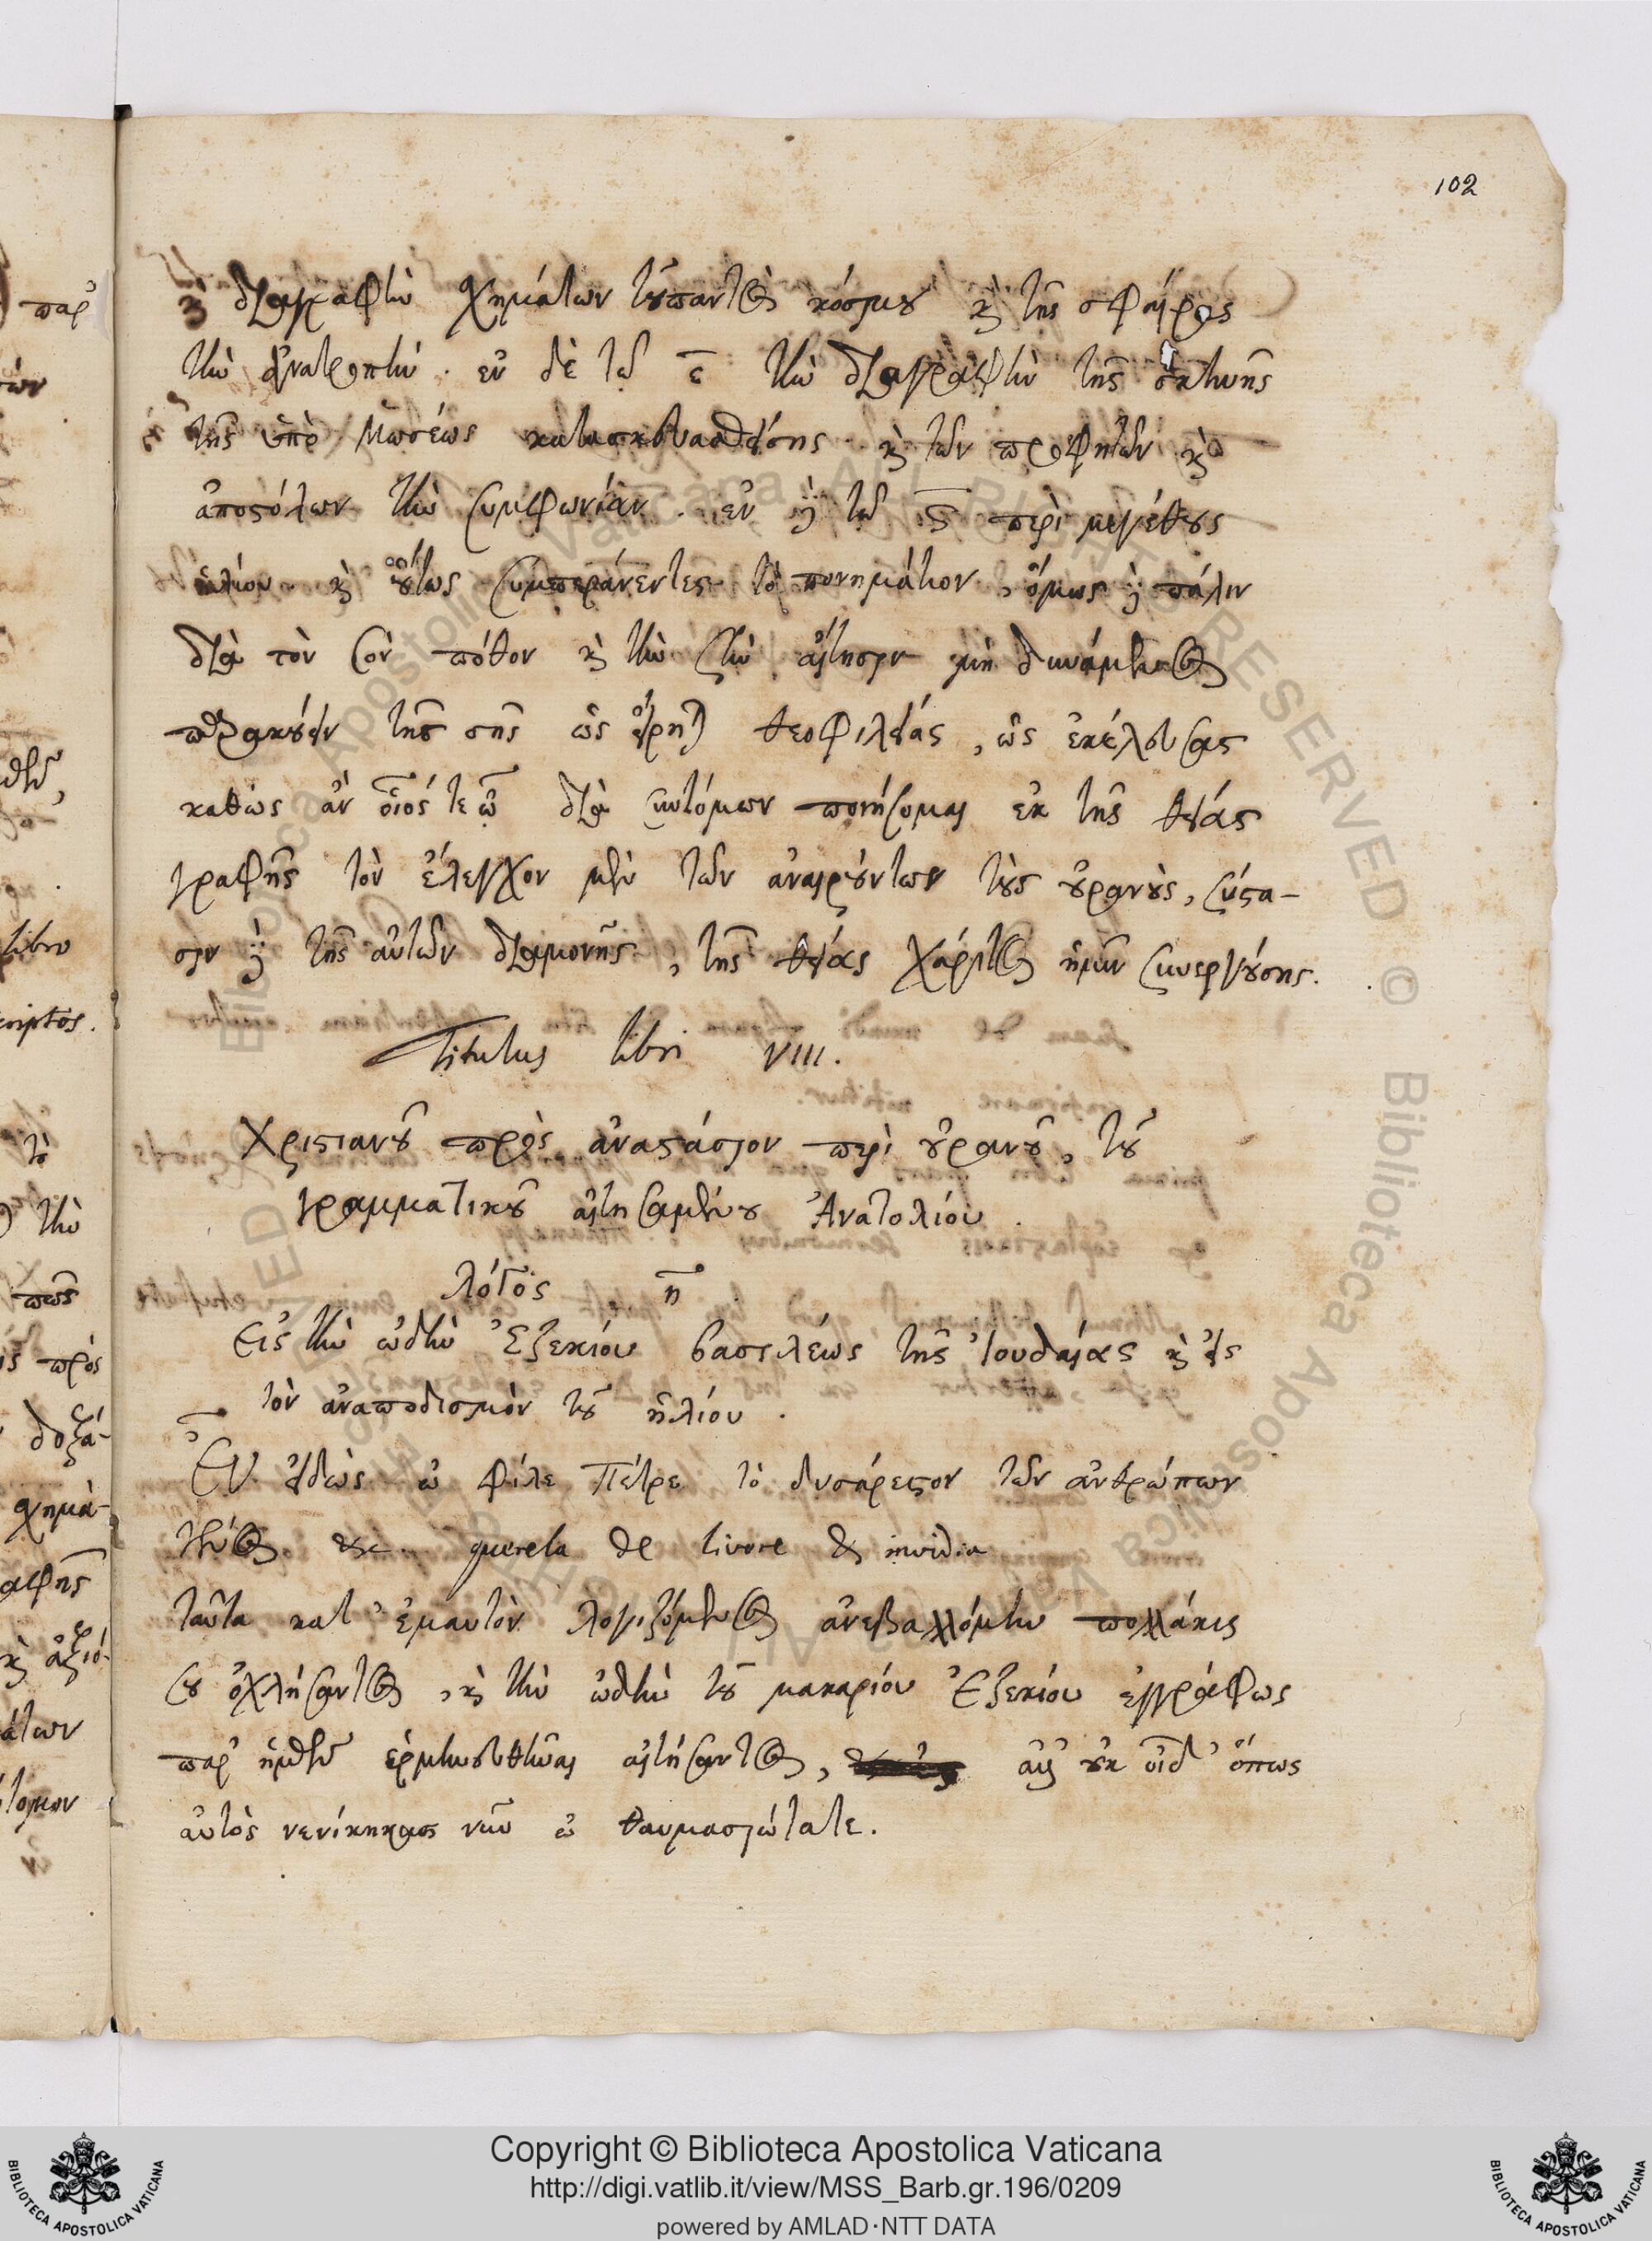 102
παρ'
libro
scriptos.
τὸ
τὴν
πως
πρὸς
δοξά-
χημά-
καὶ ἀξιό-
καὶ διαγραφὴν χημάτων τοῦ παντὸς κόσμου καὶ τῆς σφαίρας
τὴν ἀνατροπήν. ἐν δὲ τῷ ε̄ τὴν διαγραφὴν τῆς σκηνῆς
τῆς ὑπὸ Μωσέως κατασκευασθείσης καὶ τῶν προφητῶν καὶ
ἀποστόλων τὴν συμφωνίαν. ἐν δὲ τῷ ϛ̄ περὶ μεγέθους
ἡλίου καὶ οὕτως συμπεράναντες τὸ πονημάτιον, ὅμως δὲ πάλιν
διὰ τὸν σὸν πόθον καὶ τὴν σὴν αἴτησιν μὴ δυνάμενος
παρακούειν τῆς σῆς ὡς εἴρηται θεοφιλείας, ὡς ἐκέλευσας
καθὼς ἂν οἷός τε ὦ διὰ συντόμων ποιήσομαι ἐκ τῆς θείας
γραφῆς τὸν ἔλεγχον μὲν τῶν ἀναιρούντων τοὺς οὐρανοὺς, σύστα-
σιν δὲ τῆς αὐτῶν διαμονῆς, τῆς θείας χάριτος ἡμῖν συνεργούσης.
Titulus libri VIII.
Χριστιανοῦ πρὸς ἀναστάσιον περὶ οὐρανοῦ, τοῦ
γραμματικοῦ αἰτησαμένου Ἀνατολίου.
λόγος η̄
Εἰς τὴν ᾠδὴν Ἐζεκίου βασιλέως τῆς Ἰουδαίας καὶ εἰς
τὸν ἀναποδισμὸν τοῦ ἡλίου.
Εὖ εἰδὼς ὦ φίλε Πέτρε τὸ δυσάρεστον τῶν ἀνθρώπων
γένος &c. querela de livore & invidia
ταῦτα κατ' ἐμαυτὸν λογιζόμενος ἀνεβαλλόμην πολλάκις
σοῦ ὀχλήσαντος, καὶ τὴν ᾠδὴν τοῦ μακαρίου Ἐζεκίου ἐγγράφως
παρ' ἡμῶν ἑρμηνευθῆναι αἰτήσαντος, ἀλλ' οὐκ οἶδ' ὅπως
αὐτὸς νενίκηκας νῦν ὦ θαυμασιώτατε.
Copyright © Biblioteca Apostolica Vaticana
http://digi.vatlib.it/view/MSS_Barb.gr.196/0209
powered by AMLAD·NTT DATA
BIBLIOTECA APOSTOLICA VATICANA
BIBLIOTECA APOSTOLICA VATICANA